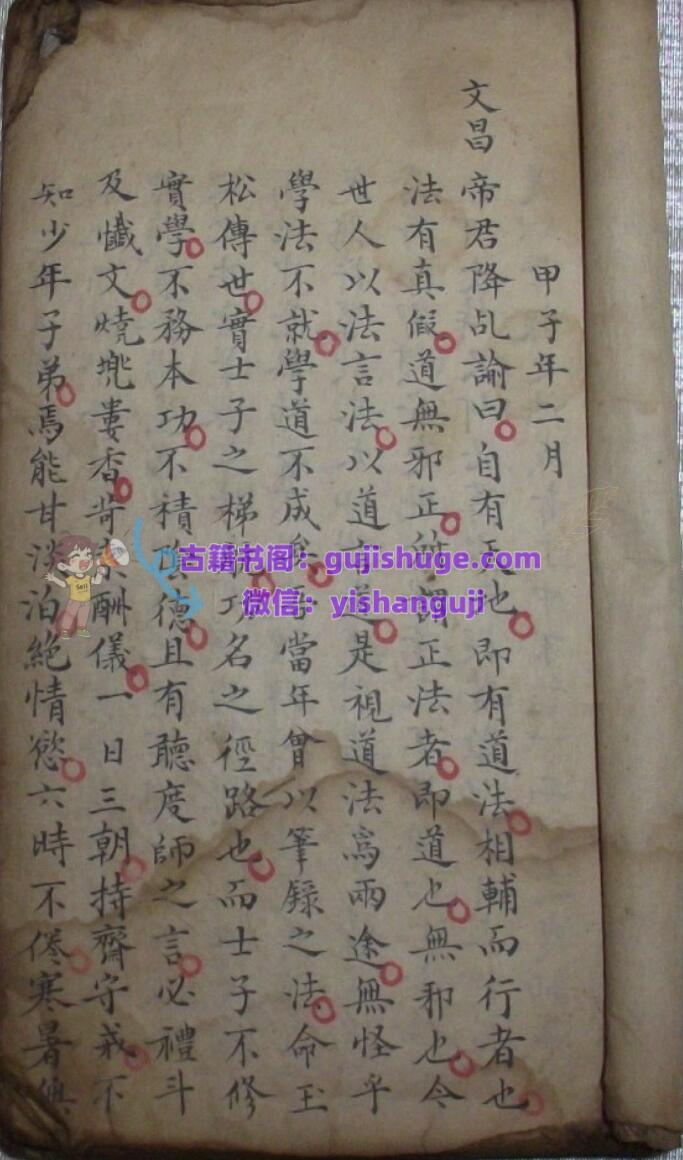 甲子年二月
文昌帝君降乩諭曰自有天地即有道法相輔而行者也
法有真假道無邪正謂正法者即道也無邪也今
世人以法言法以道言道是視道法為兩途無怪乎
學法不就學道不成吾當年曾以筆錄之法命玉
松傳世實士子之梯功名之徑路也而士子不修
實學不務本功不積陰德且有聽度師之言必禮斗
及懺文燒兠婁香酬儀一日三朝持齊守戒不
知少年子弟焉能甘淡泊絕情慾六時不倦寒暑無
古籍书阁：gujishuge.com
微信：yishanguji